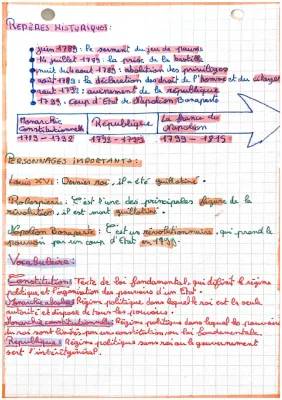 REPÈRES HISTORIQUES:
juin 1789: le serment du jeu de paume
14 juillet 1789: la prise de la bastille
nuit du 4 août: abolition des privilèges
août 1789: la déclaration des droit de l'homme et du citoyen
: avènement de la république
1799: Coup d'Etat de Napoléon Bonaparte
Monarchie Constitutionnelle
République
La france de Napoléon
1792 - 1799
1799 - 1815
PERSONNAGES IMPORTANTS:
Louis XVI: Dernier roi, il a été guillotiné.
Robespierre: C'est l'une des principales figure de la
révolution, il est mort guillotiné.
Napoléon Bonaparte: C'est un révolutionnaire, qui prend le
pouvoir par un coup d'Etat en 1799.
Vocabulaire:
Constitution: Texte de loi fondamental, qui définit le régime
politique et l'organisation des pouvoirs d'un Etat.
Monarchie absolue: Régime politique dans lequel le roi est la seule
autorité et dispose de tous les pouvoirs.
Monarchie constitutionnelle: Régime politique dans lequel les pouvoirs
du roi sont limités par une constitution ou loi fondamentale.
République: Régime politique sans roi ou le gouvernement
sert l'intérêt général.